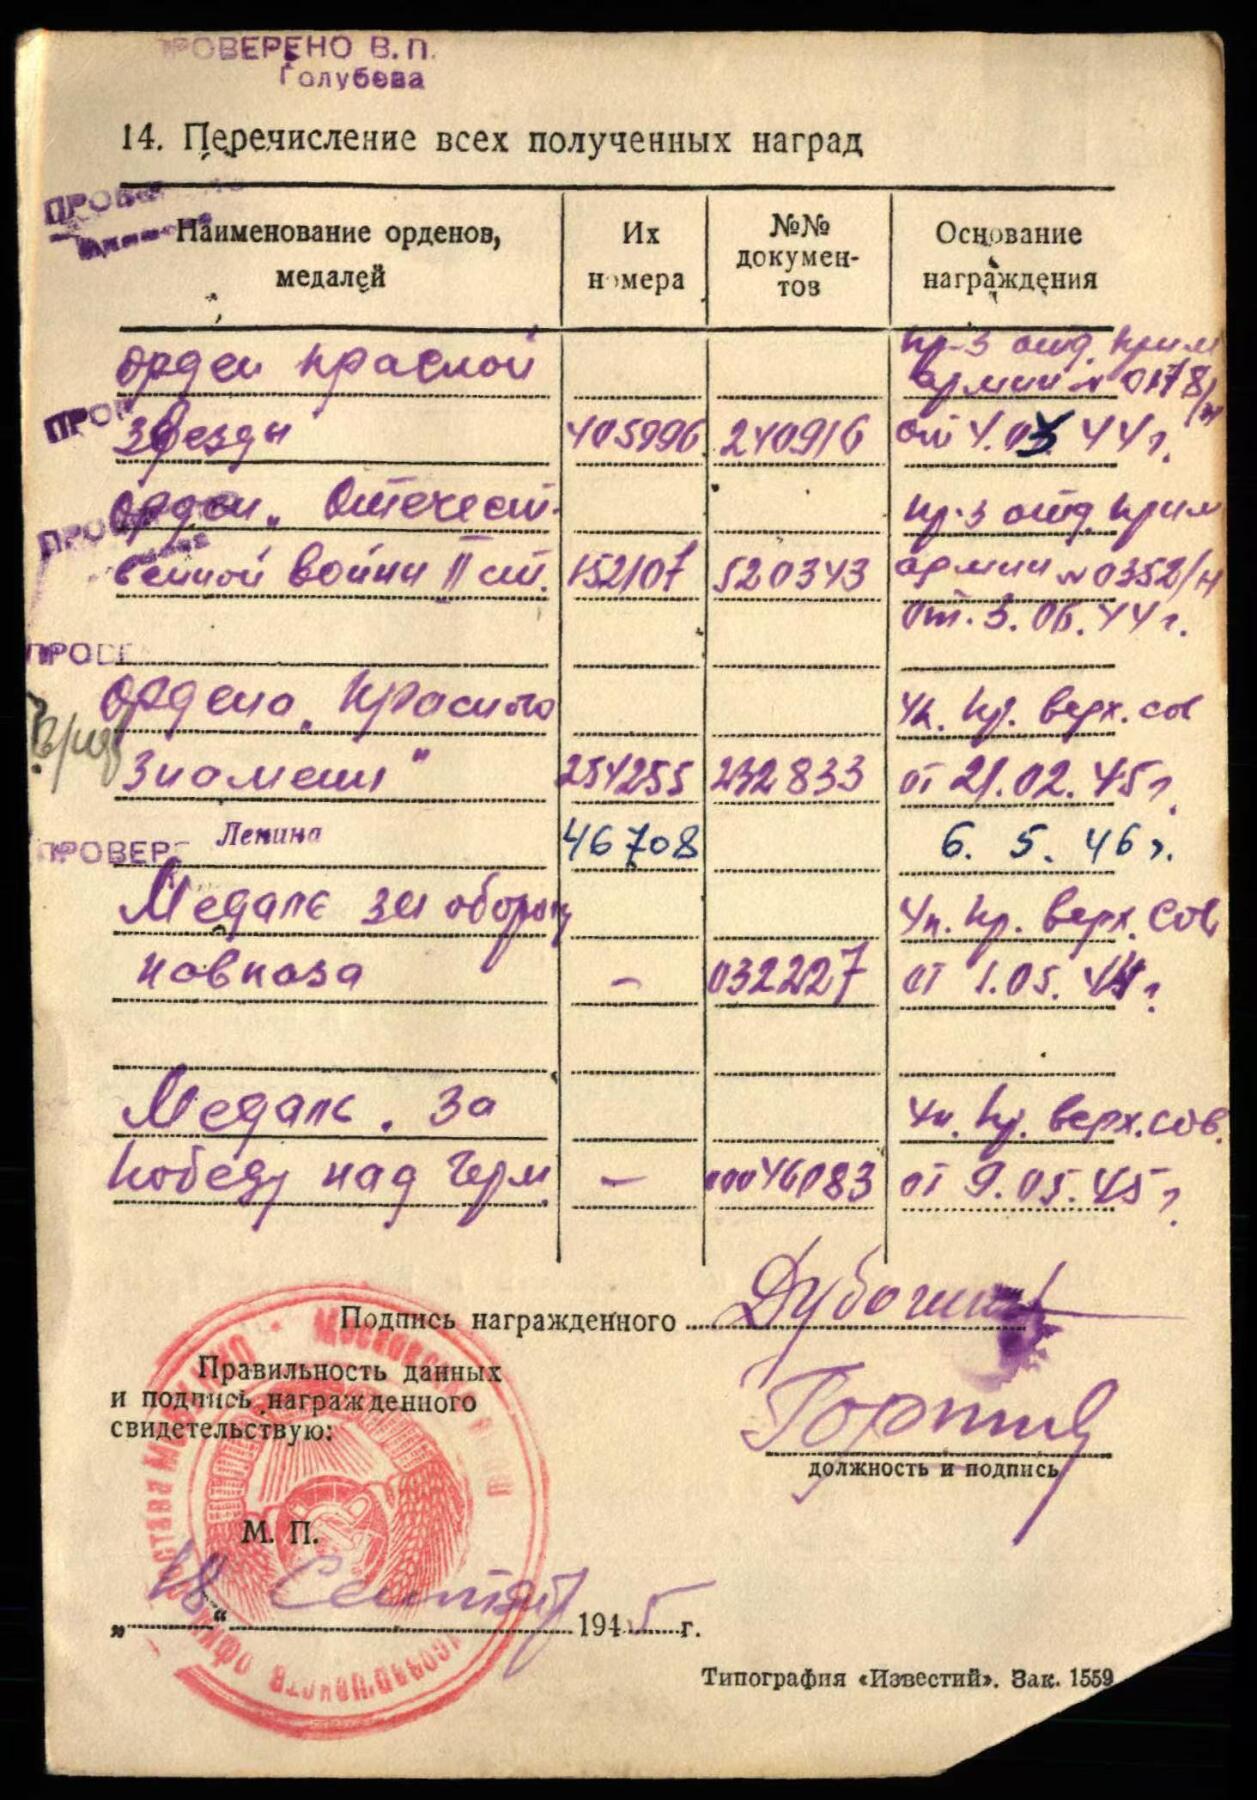 ПРОВЕРЕНО В.П.
Голубева
14. Перечисление всех полученных наград
Наименование орденов, медалей
Их номера
№№ документов
Основание награждения
орден красной
пр-з отд. прим
армии № 0178/н
звезды 405996 240916 от 4.03.44г.
орден „Отечест-
пр-з отд. прим
венной войны II ст. 152107 520343 армии № 0352/н
от. 3.06.44 г.
ПРОВЕ
ордена „Красного
Ук. пр. верх. сов
Знамени" 254255 232833 от 21.02.45г.
ПРОВЕР
Ленина 46708 6. 5. 46 г.
Медаль за оборону
Ук. пр. верх. сов
кавказа - 032227 от 1.05.44г.
Медаль „За
Ук. пр. верх. сов.
победу над герм - 0046083 от 9.05.45г.
Подпись награжденного
Правильность данных
и подпись награжденного
свидетельствую:
должность и подпись
М. П.
„18" Сентяб 1945 г.
Типография «Известий». Зак. 1559